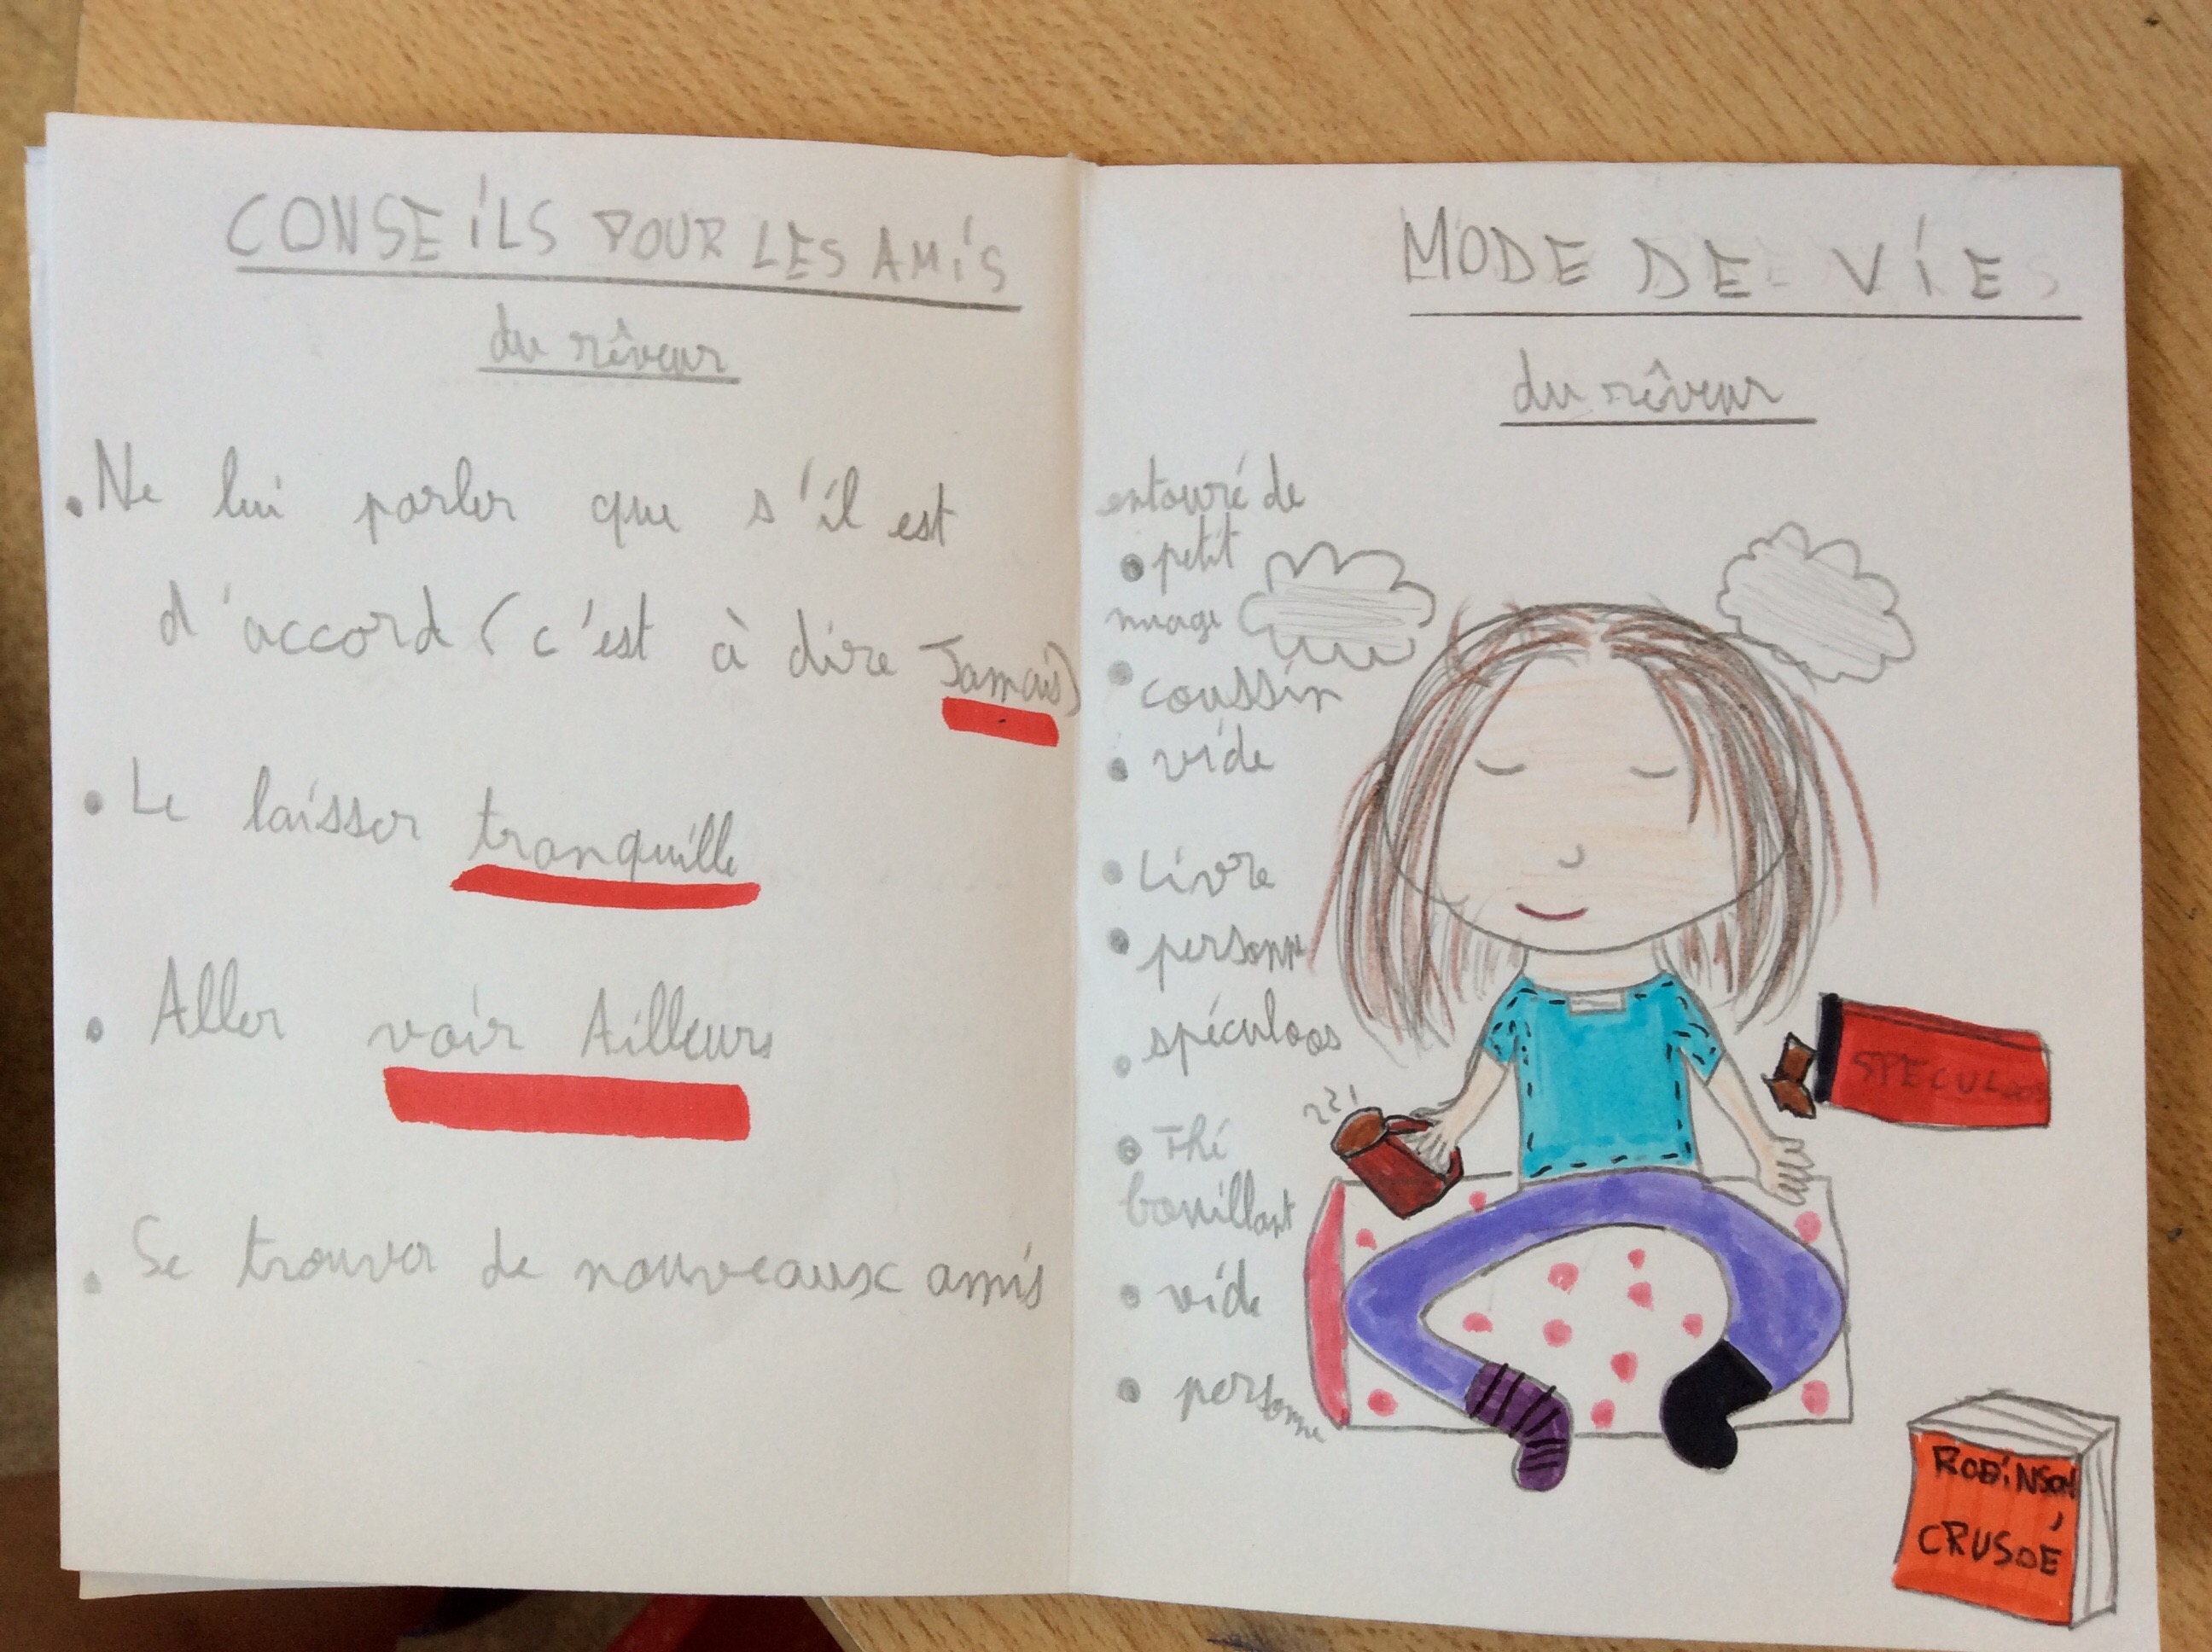 CONSEILS POUR LES AMIS
du rêveur
• Ne lui parler que s'il est
d'accord (c'est à dire Jamais)
• Le laisser tranquille
• Aller voir Ailleurs
• Se trouver de nouveaux amis
MODE DE VIE
du rêveur
entouré de
• petit
nuage
• coussin
• vide
• Livre
• personne
• spéculoos
• Thé
bouillant
• vide
• personne
SPECULOOS
ROBINSON
CRUSOÉ